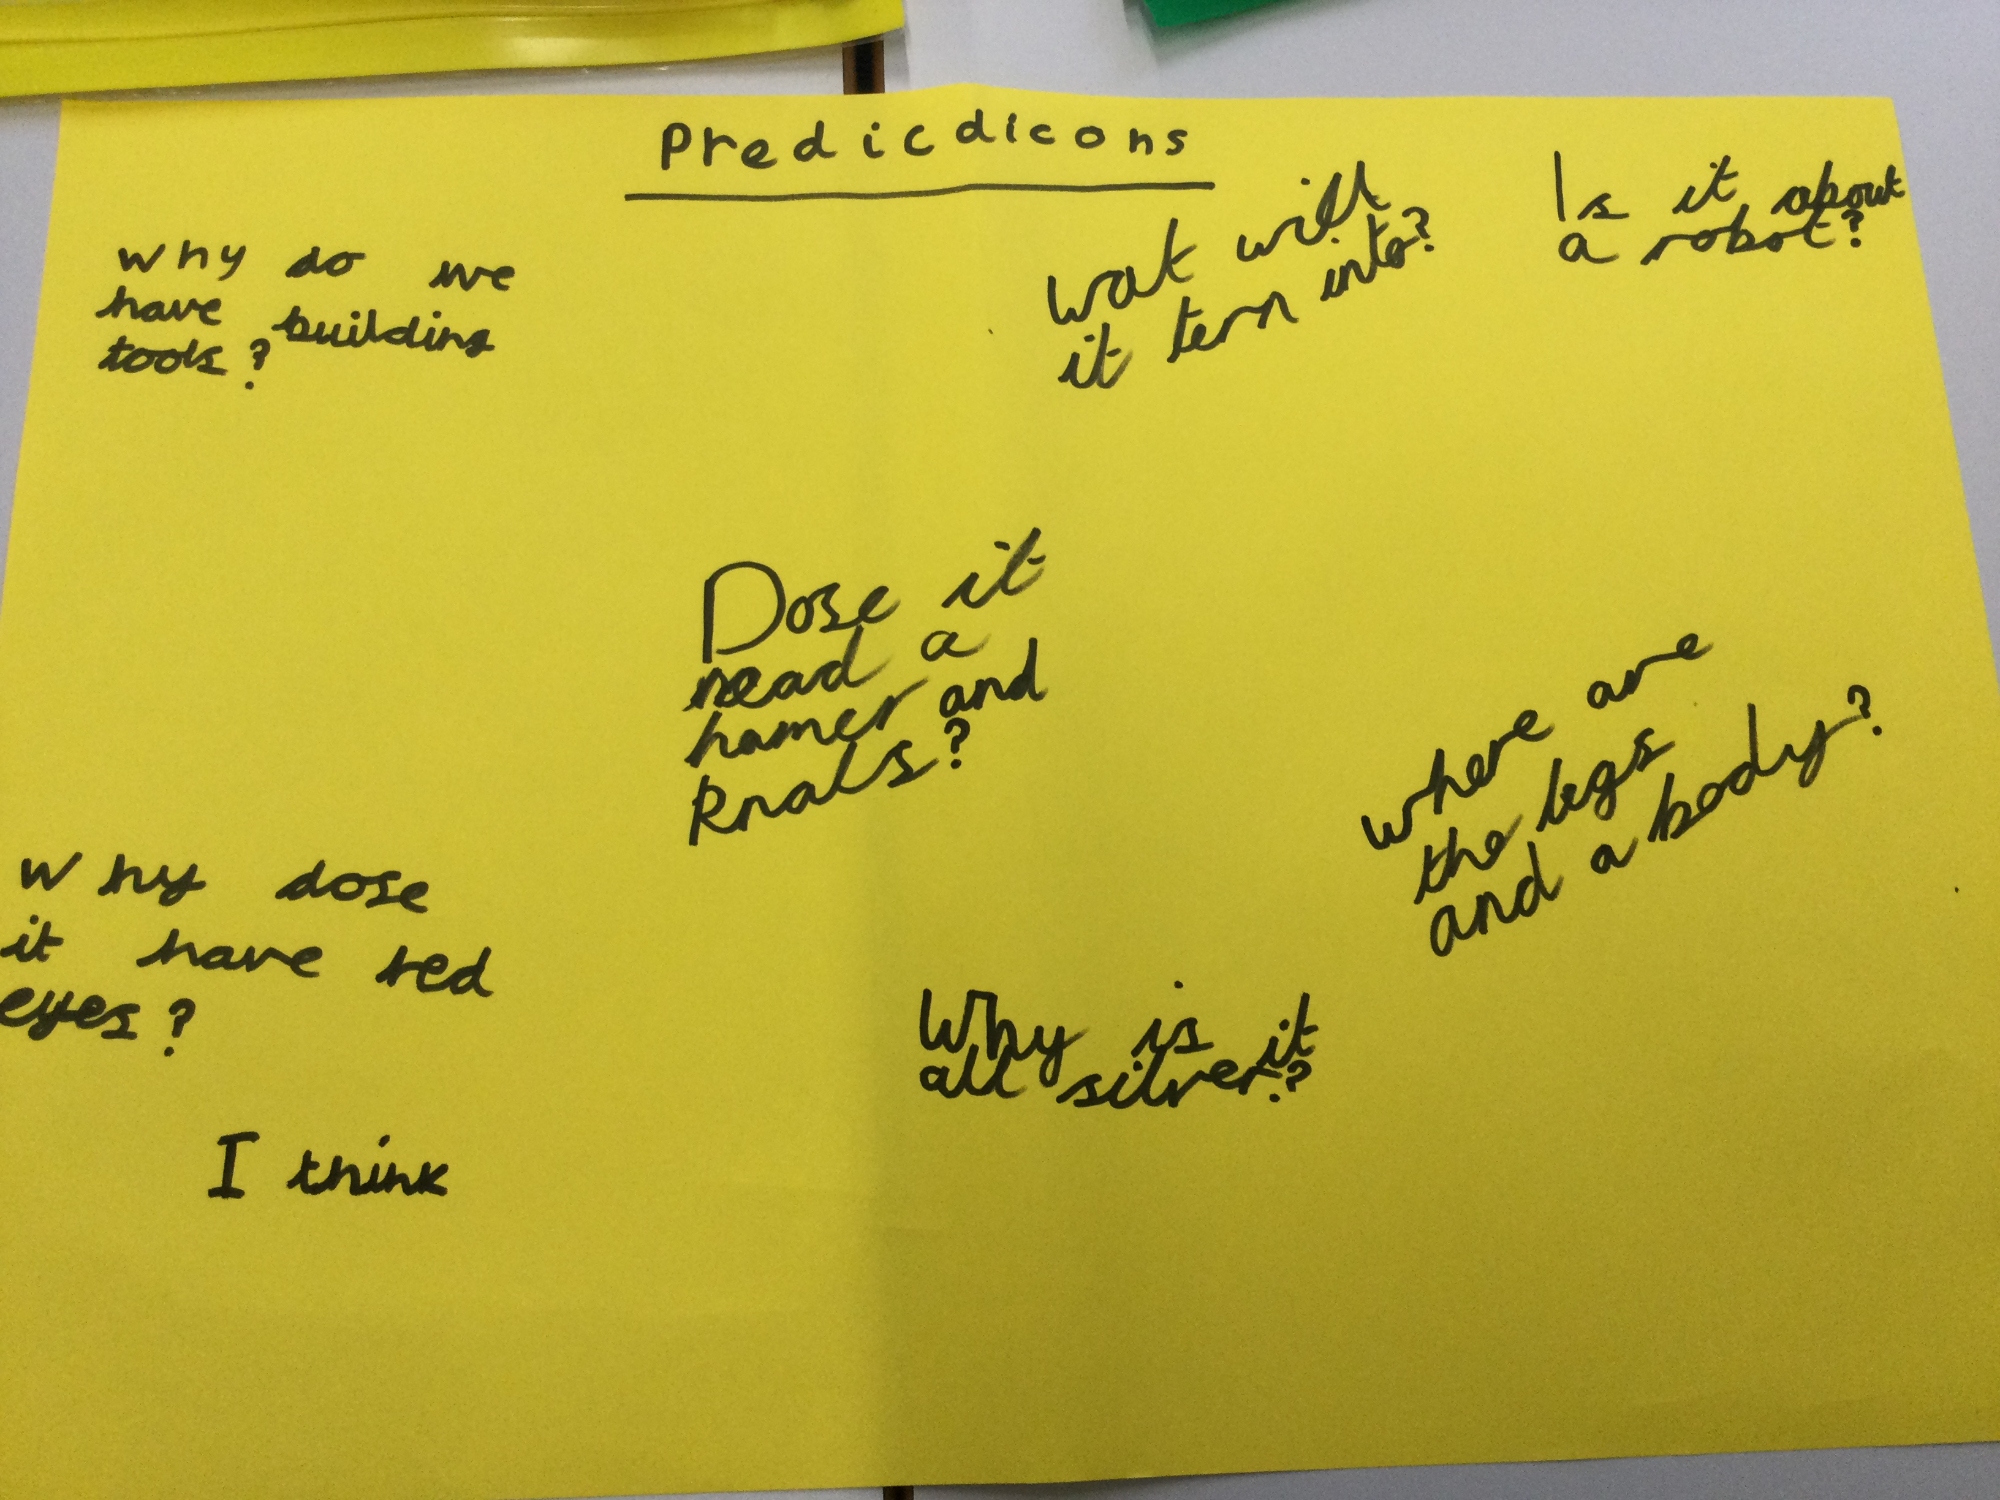 Predicdicons
why do we
have building
tools?
wat will
it tern into?
Is it about
a robot?
Dose it
nead a
hamer and
where are
the legs
and a body?
Why dose
it have red
eyes?
Why is it
all silver?
I think